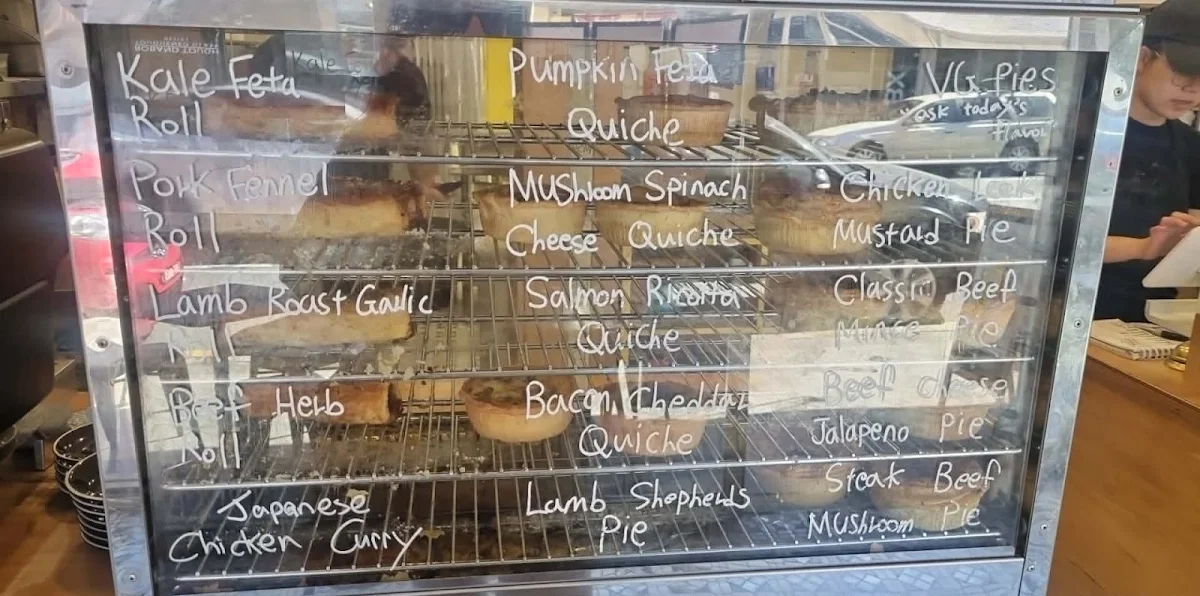 Kale Feta
Roll
Pumpkin Feta
Quiche
VG Pies
*ask today's
flavour
Pork Fennel
Roll
Mushroom Spinach
Cheese Quiche
Chicken Leek
Mustard Pie
Lamb Roast Garlic
Roll
Salmon Ricotta
Quiche
Classic Beef
Mince Pie
Beef Herb
Roll
Bacon, Cheddar
Quiche
Beef cheese
Jalapeno Pie
Japanese
Chicken Curry
Lamb Shepherds
Pie
Steak Beef
Mushroom Pie